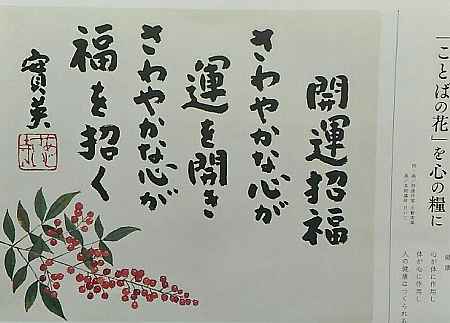 「ことばの花」を心の糧に
健康
心が体に作用し
体が心に作用し
人の健康はつくられる
開運招福
さわやかな心が
運を開き
さわやかな心が
福を招く
實美